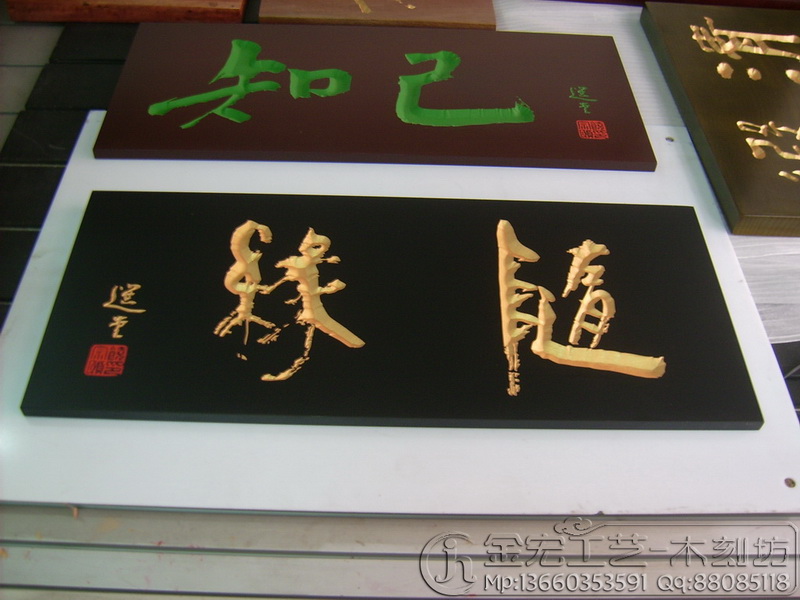 知己
選堂
隨緣
選堂
金宏工艺-木刻坊
Mp:13660353591 QQ:88085118